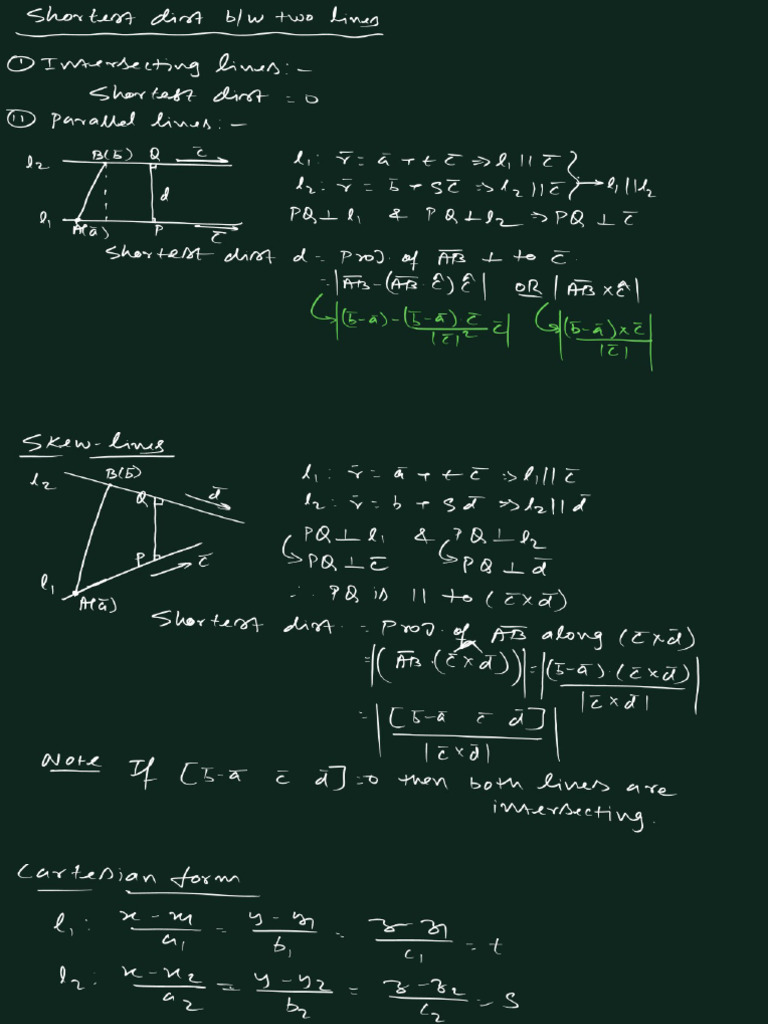 Shortest dist b/w two lines
① Intersecting lines:-
Shortest dist = 0
② Parallel lines:-
l₂ B(b̄) Q c̄
d
l₁ A(ā) P c̄
l₁: r̄ = ā + t c̄ ⇒ l₁ || c̄
l₂: r̄ = b̄ + S c̄ ⇒ l₂ || c̄ → l₁ || l₂
PQ ⊥ l₁ & PQ ⊥ l₂ ⇒ PQ ⊥ c̄
Shortest dist d = Proj. of A̅B̅ ⊥ to c̄.
= |A̅B̅ - (A̅B̅ · ĉ) ĉ| OR |A̅B̅ × ĉ|
↳ |(b̄-ā) - (b̄-ā) c̄ / |c̄|² c̄| ↳ |(b̄-ā) × c̄ / |c̄||
Skew-lines
l₂ B(b̄) Q d̄
l₁ A(ā) P c̄
l₁: r̄ = ā + t c̄ ⇒ l₁ || c̄
l₂: r̄ = b + S d̄ ⇒ l₂ || d̄
PQ ⊥ l₁ & PQ ⊥ l₂
↳ PQ ⊥ c̄ ↳ PQ ⊥ d̄
∴ PQ is || to (c̄ × d̄)
Shortest dist. = Proj. of A̅B̅ along (c̄ × d̄)
= |(A̅B̅ · (c̄ × d̄))| = |(b̄-ā) · (c̄ × d̄) / |c̄ × d̄||
= |[b̄-ā c̄ d̄] / |c̄ × d̄||
Note If [b̄-ā c̄ d̄] = 0 then both lines are
intersecting.
Cartesian form
l₁: x - x₁ / a₁ = y - y₁ / b₁ = z - z₁ / c₁ = t
l₂: x - x₂ / a₂ = y - y₂ / b₂ = z - z₂ / c₂ = S